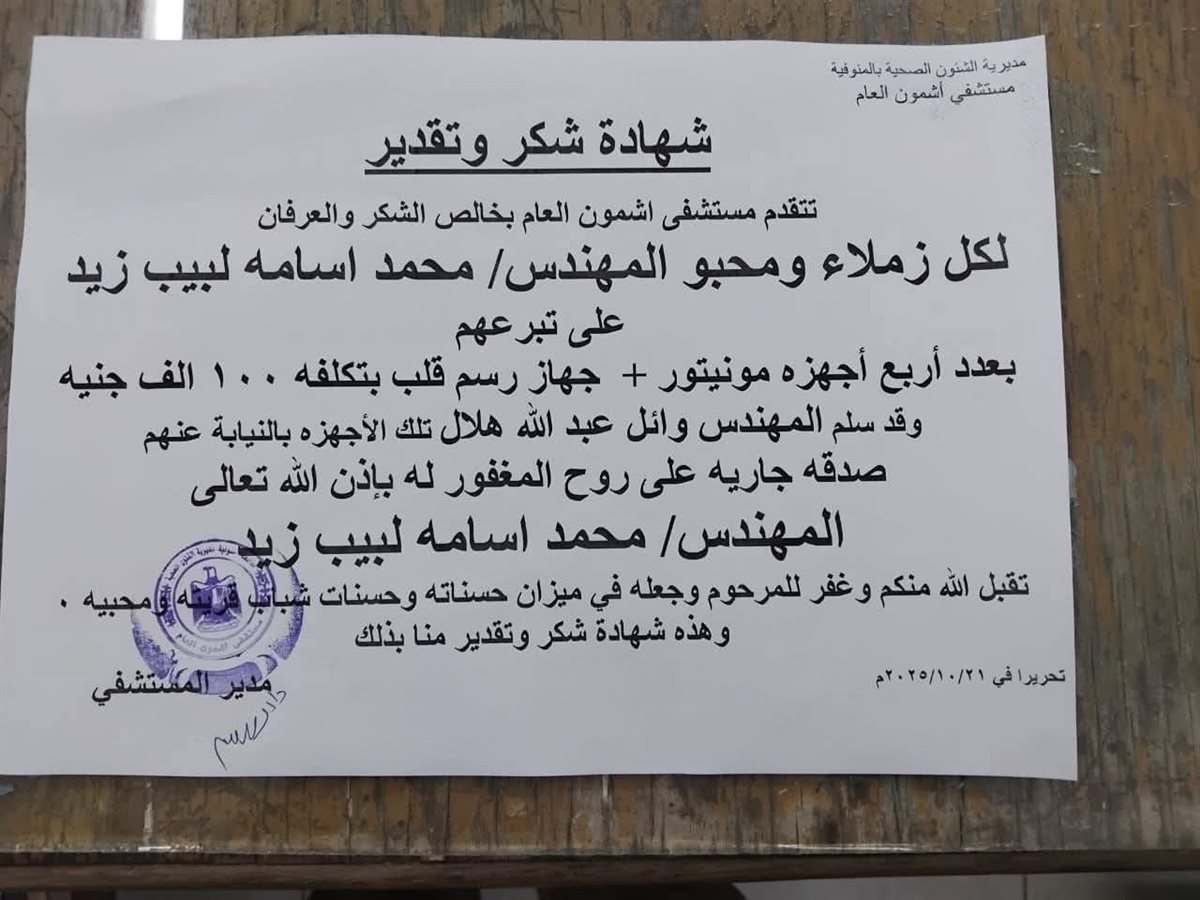 مديرية الشئون الصحية بالمنوفية
مستشفي أشمون العام
شهادة شكر وتقدير
تتقدم مستشفى اشمون العام بخالص الشكر والعرفان
لكل زملاء ومحبو المهندس/ محمد اسامه لبيب زيد
على تبرعهم
بعدد أربع أجهزه مونيتور + جهاز رسم قلب بتكلفه ١٠٠ الف جنيه
وقد سلم المهندس وائل عبد الله هلال تلك الأجهزه بالنيابة عنهم
صدقه جاريه على روح المغفور له بإذن الله تعالى
المهندس/ محمد اسامه لبيب زيد
تقبل الله منكم وغفر للمرحوم وجعله في ميزان حسناته وحسنات شباب قريته ومحبيه .
وهذه شهادة شكر وتقدير منا بذلك
تحريرا في ٢٠٢٥/١٠/٢١م
مدير المستشفي
مستشفى اشمون العام